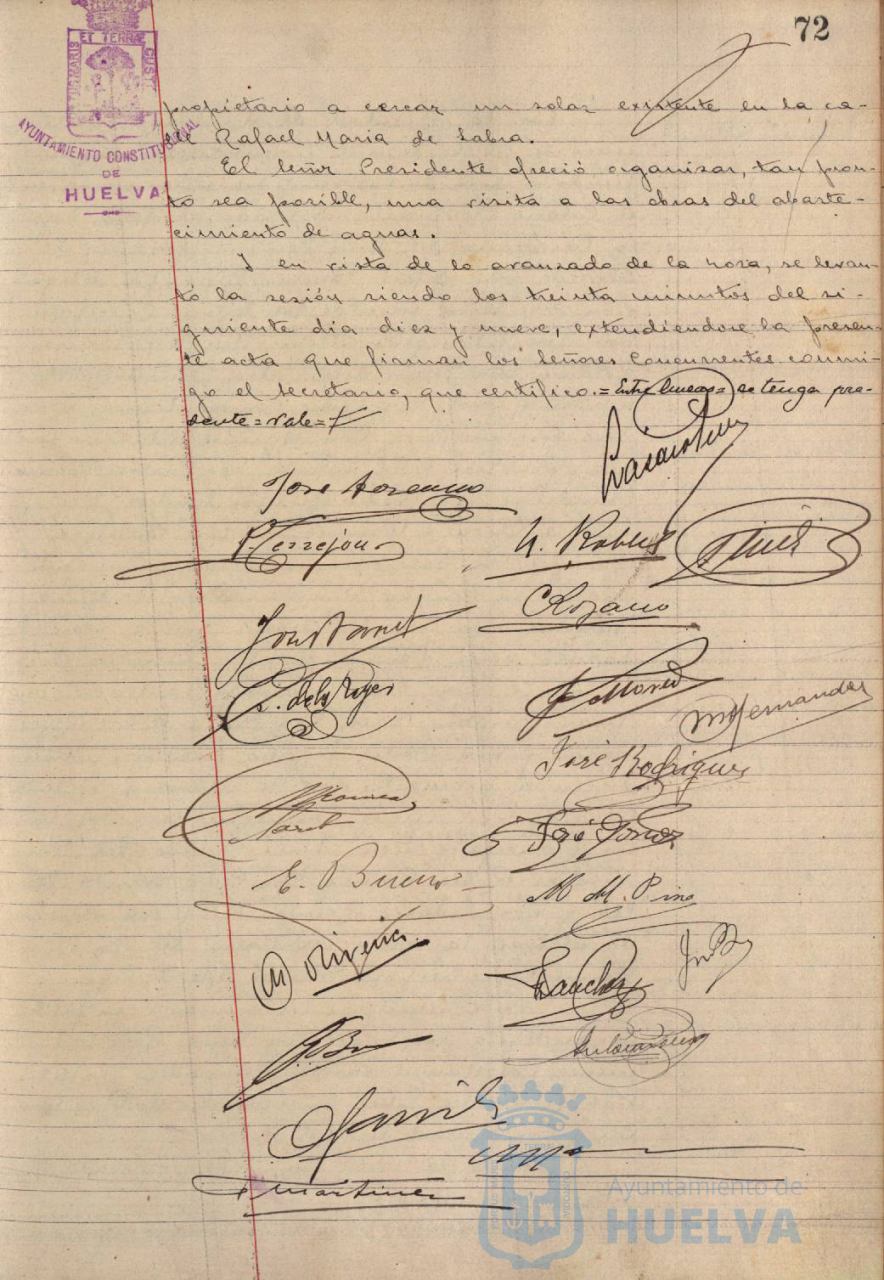 72
PORTUS MARIS ET TERRÆ CUSTODIA
AYUNTAMIENTO CONSTITUCIONAL
DE
HUELVA
propietario a cercar un solar existente en la ca-
lle Rafael Maria de Labra.
El Señor Presidente ofreció organizar, tan pron-
to sea posible, una visita a las obras del abaste-
cimiento de aguas.
Y en vista de lo avanzado de la hora, se levan-
tó la sesión siendo los treinta minutos del si-
guiente dia diez y nueve, extendiéndose la presen-
te acta que firman los Señores Concurrentes conmi-
go el Secretario, que certifico.=Entre lineas=se tenga pre-
sente=vale=
José
P. Terrejon
Robles
Lozano
M Hernandez
José Rodriguez
José Gomez
E. Bueno
M. M. Pino
M Oliveira
Sanchez
Martinez
Ayuntamiento de
HUELVA